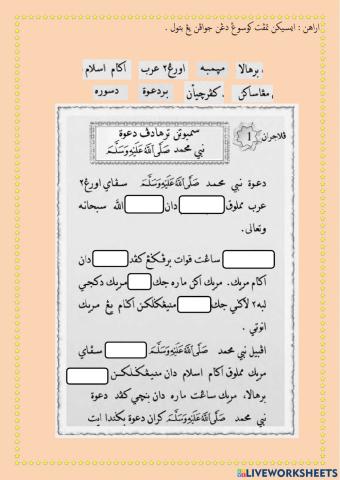 اراهن : ايسيکن تمڤت کوسوڠ دڠن جواڤن يڠ بتول .
برهالا. مڽمبه اورڠ٢ عرب اݢام اسلام
مڠاساکن. کڤرچيأن. بردعوة دسوره
ڤلاجرن 1 سمبوتن ترهادڤ دعوة
نبي محمد صَلَّى اللهُ عَلَيْهِ وَسَلَّمَ
دعوة نبي محمد صَلَّى اللهُ عَلَيْهِ وَسَلَّمَ سڤاي اورڠ٢
عرب مملوق دان الله سبحانه
وتعالى.
ساڠت قوات برڤݢڠ کڤد دان
اݢام مريک. مريک اکن ماره جک مريک دکجي
لبه٢ لاݢي جک منيڠݢلکن اݢام يڠ مريک
انوتي .
اڤبيل نبي محمد صَلَّى اللهُ عَلَيْهِ وَسَلَّمَ سڤاي
مريک مملوق اݢام اسلام دان منيڠݢلکن
برهالا، مريک ساڠت ماره دان بنچي کڤد دعوة
نبي محمد صَلَّى اللهُ عَلَيْهِ وَسَلَّمَ کران دعوة بݢيندا ايت
LIVEWORKSHEETS